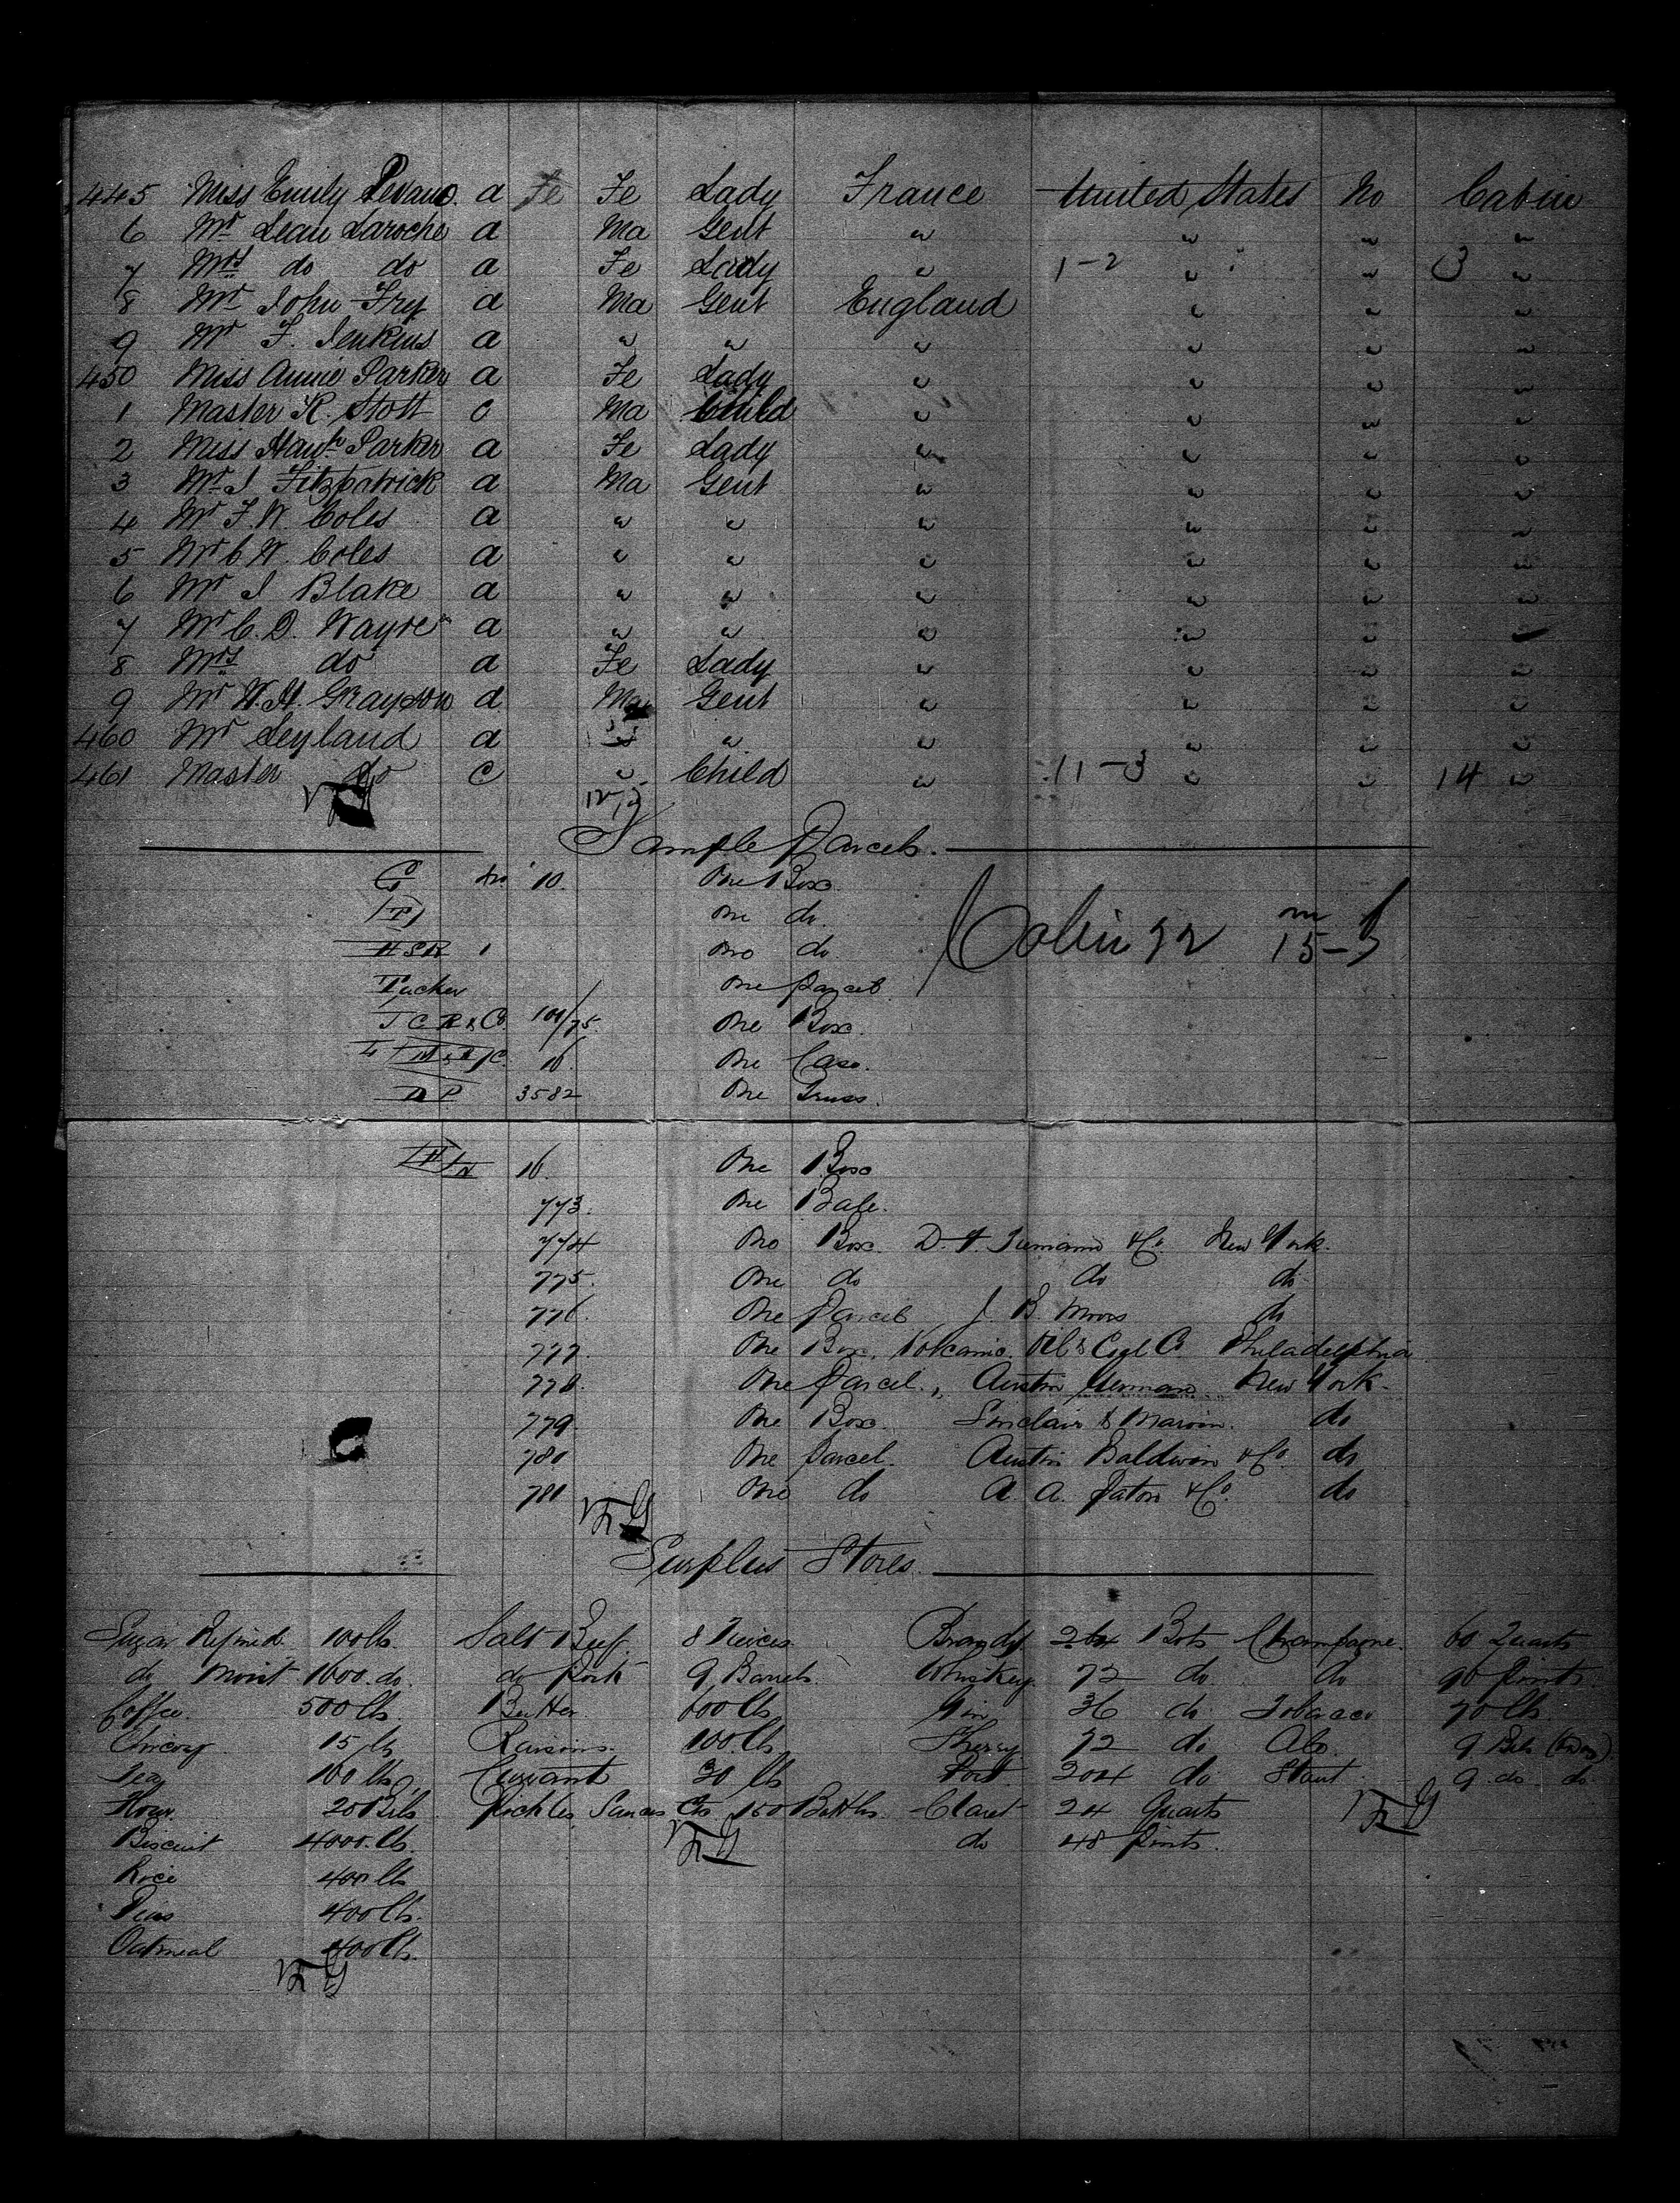 445 Miss Emily a Fe Fe Lady France United States No Cabin
6 Mr Jean Laroche a Ma Gent " " " "
7 Mrs do do a Fe Lady " 1-2 " " 3 "
8 Mr John Fry a Ma Gent England " " "
9 Mr F. Jenkins a " " " " " "
450 Miss Annie Parker a Fe Lady " " " "
1 Master R. Stott c Ma Child " " " "
2 Miss Hanh Parker a Fe Lady " " " "
3 Mr J Fitzpatrick a Ma Gent " " " "
4 Mr F. W. Coles a " " " " " "
5 Mr C. W. Coles a " " " " " "
6 Mr J Blake a " " " " " "
7 Mr C. D. Wayre a " " " " " "
8 Mrs do a Fe Lady " " " "
9 Mr W. H. Grayson a Ma Gent " " " "
460 Mr Leyland a " " " " " "
461 Master do c " Child " 11-3 " " 14 "
Sample Parcels
G No 10. One Box
P One do
HSR 1 One do
Tucker One parcel
J C R & Co. 101/75 One Box
One Case.
D P 3582 One Truss.
One Box
773. One Bale.
774 One Box. & Co. New York.
775. One do do do
776. One Parcel J. B. Moors do
777. One Box. Volcanic Oil & Coal Co. Philadelphia.
778. One Parcel. Austin New York.
779. One Box. Sinclair & Marvin. do
780 One Parcel. Austin Baldwin & Co. do
781 One do A. A. Paton & Co. do
Surplus Stores
Sugar Refined 100 lbs. Salt Beef 8 Tierces Brandy 264 Bots Champagne. 60 Quarts
do Moist 1600 do. do Pork 9 Barrels Whiskey 72 do do 96 Pints.
Coffee. 500 lbs. Butter 600 lbs Gin 36 do Tobacco 70 lbs.
Chicory 15 lbs Raisins. 100 lbs Sherry 72 do Ale.
Tea 100 lbs Currants 30 lbs Port. 204 do Stout 9 do do
Flour. 20 Brls Pickles, Sauces &c 150 Bottles. Claret 24 Quarts
Biscuit 4000 lbs. do 48 pints.
Rice 400 lbs
Peas 400 lbs.
Oatmeal 400 lbs.